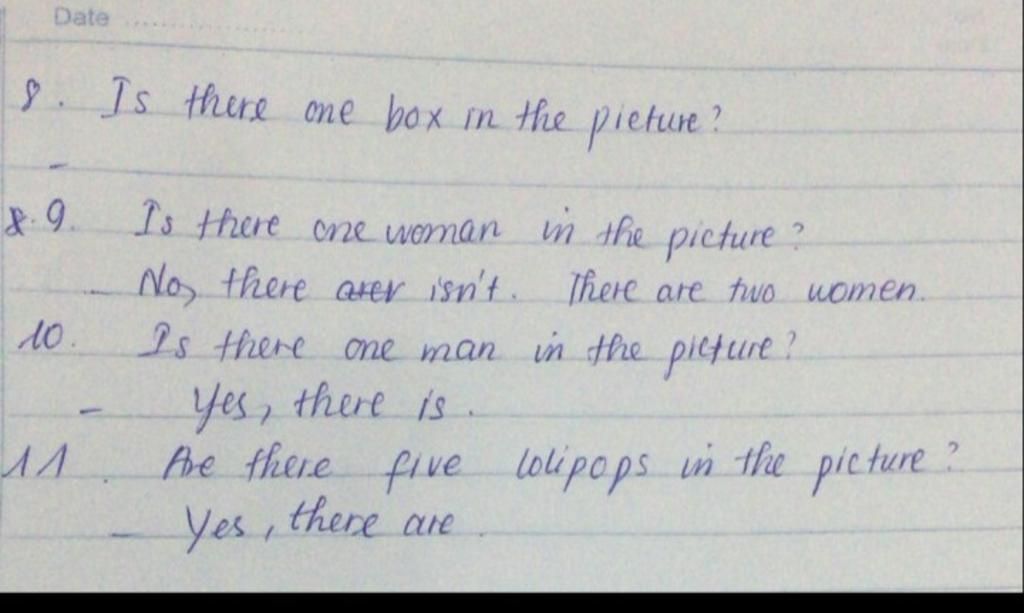 Date ....................
8. Is there one box in the picture?
-
9. Is there one woman in the picture?
- No, there isn't. There are two women.
10. Is there one man in the picture?
- Yes, there is.
11. Are there five lolipops in the picture?
- Yes, there are.